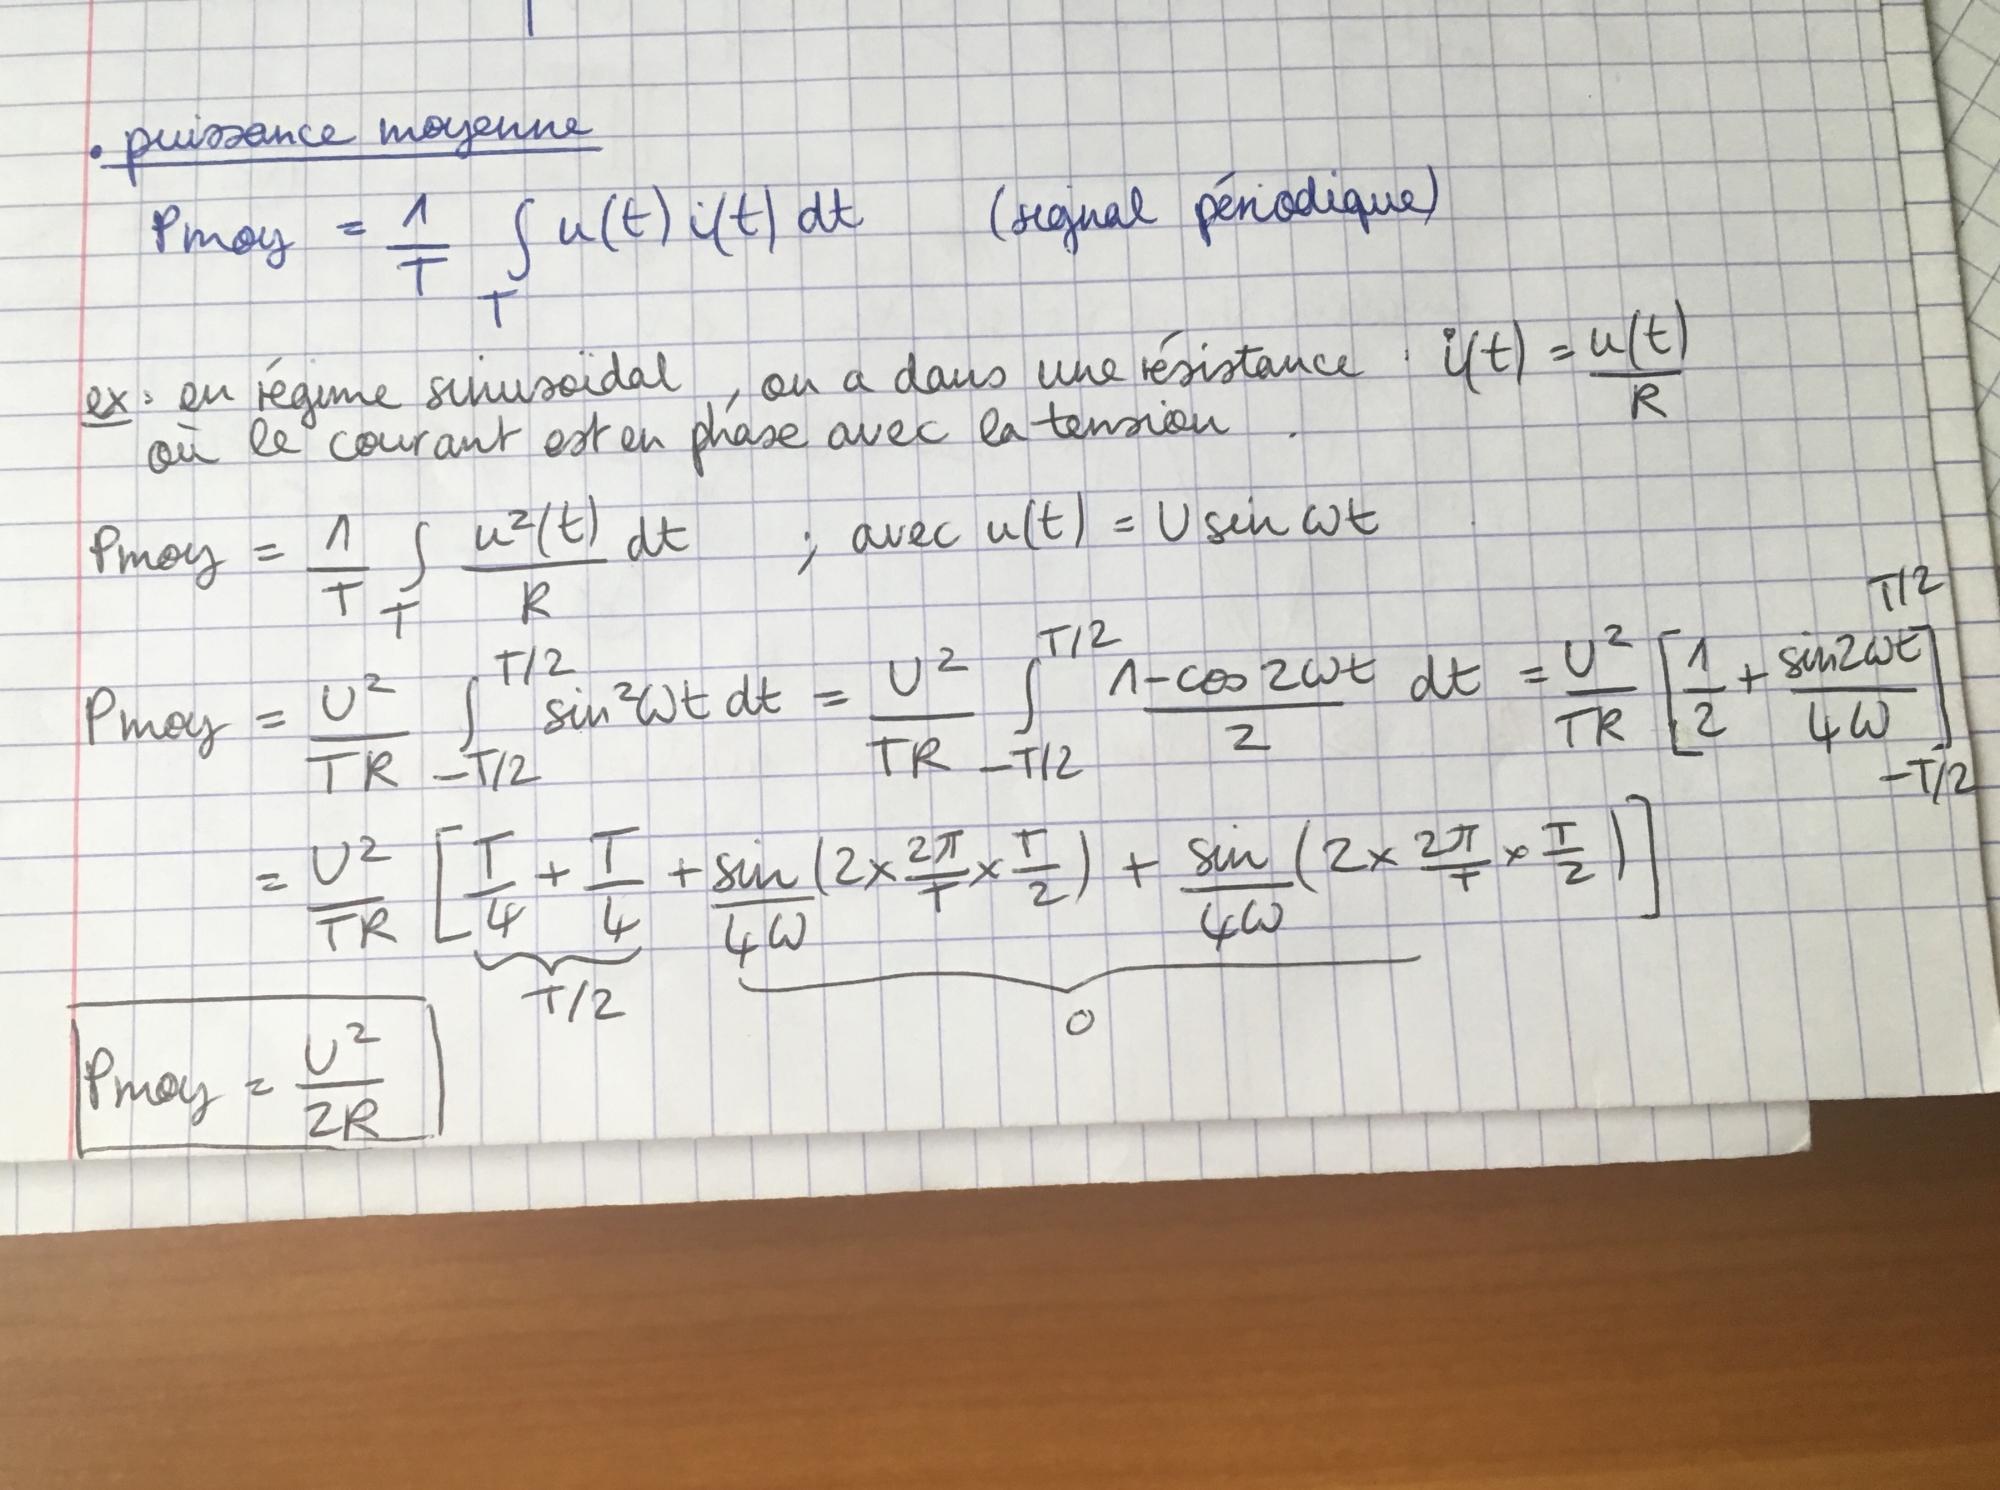 • puissance moyenne
Pmoy = 1/T ∫_T u(t) i(t) dt (signal périodique)
ex: en régime sinusoïdal, on a dans une résistance : i(t) = u(t)/R
où le courant est en phase avec la tension.
Pmoy = 1/T ∫_T u²(t)/R dt ; avec u(t) = U sin ωt
Pmoy = U²/TR ∫_{-T/2}^{T/2} sin²ωt dt = U²/TR ∫_{-T/2}^{T/2} (1-cos 2ωt)/2 dt = U²/TR [1/2 + sin2ωt/4ω]_{-T/2}^{T/2}
= U²/TR [T/4 + T/4 + sin/4ω (2 × 2π/T × T/2) + sin/4ω (2 × 2π/T × T/2)]
T/2 0
Pmoy = U²/2R